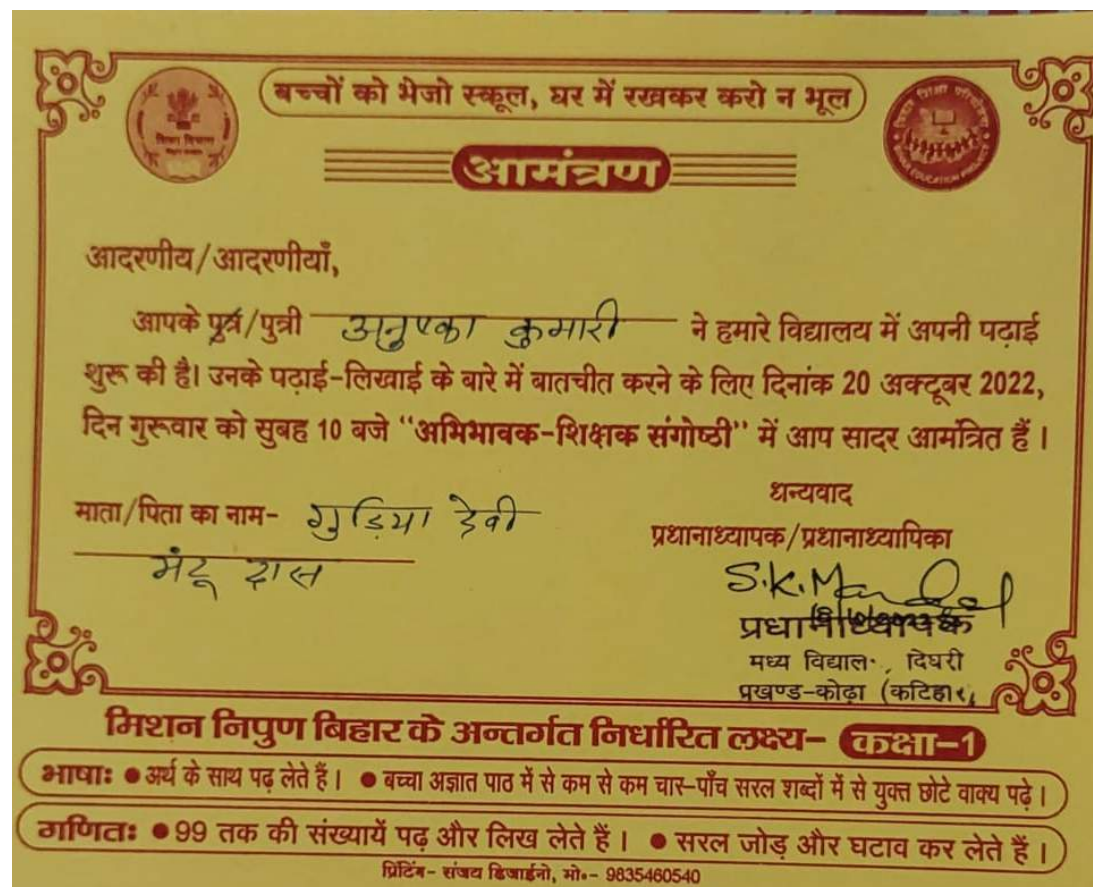 बच्चों को भेजो स्कूल, घर में रखकर करो न भूल
शिक्षा विभाग
बिहार शिक्षा परियोजना
BIHAR EDUCATION PROJECT
आमंत्रण
आदरणीय/आदरणीयाँ,
आपके पुत्र/पुत्री अनुष्का कुमारी ने हमारे विद्यालय में अपनी पढ़ाई
शुरू की है। उनके पढ़ाई-लिखाई के बारे में बातचीत करने के लिए दिनांक 20 अक्टूबर 2022,
दिन गुरूवार को सुबह 10 बजे "अभिभावक-शिक्षक संगोष्ठी" में आप सादर आमंत्रित हैं।
माता/पिता का नाम- गुड़िया देवी
मंटू दास
धन्यवाद
प्रधानाध्यापक/प्रधानाध्यापिका
S.K. Mandal
प्रधानाध्यापक
मध्य विद्यालय, दिघरी
प्रखण्ड-कोढ़ा (कटिहार)
मिशन निपुण बिहार के अन्तर्गत निर्धारित लक्ष्य- कक्षा-1
भाषाः ● अर्थ के साथ पढ़ लेते हैं। ● बच्चा अज्ञात पाठ में से कम से कम चार-पाँच सरल शब्दों में से युक्त छोटे वाक्य पढ़े।
गणितः ● 99 तक की संख्यायें पढ़ और लिख लेते हैं। ● सरल जोड़ और घटाव कर लेते हैं।
प्रिंटिंग- संजय डिजाईनो, मो०- 9835460540